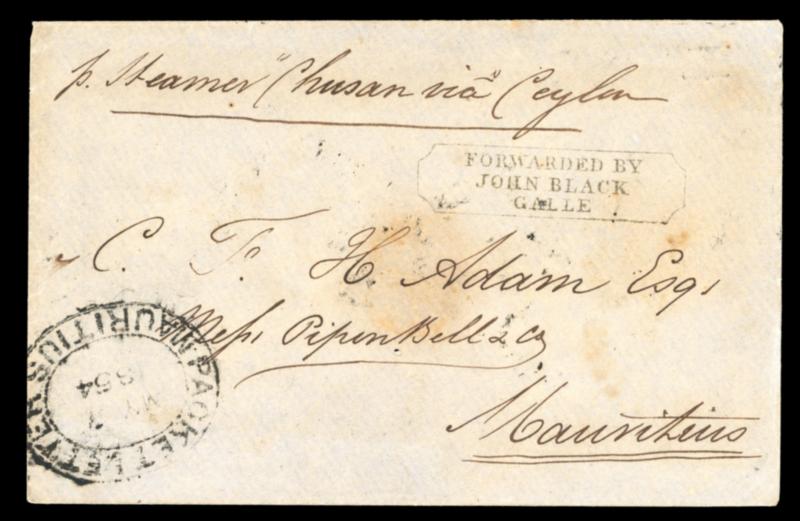 p. Steamer "Chusan via" Ceylon
FORWARDED BY
JOHN BLACK
GALLE
C. F. H Adam Esqr
Messrs Pipon Bell & Co
Mauritius
PACKET LETTER
MAURITIUS
MY
1854